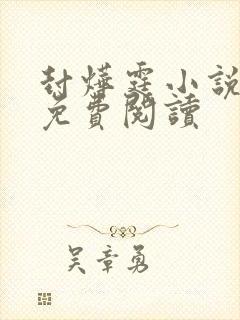 封燁霆小說
免費閱讀
吴章勇